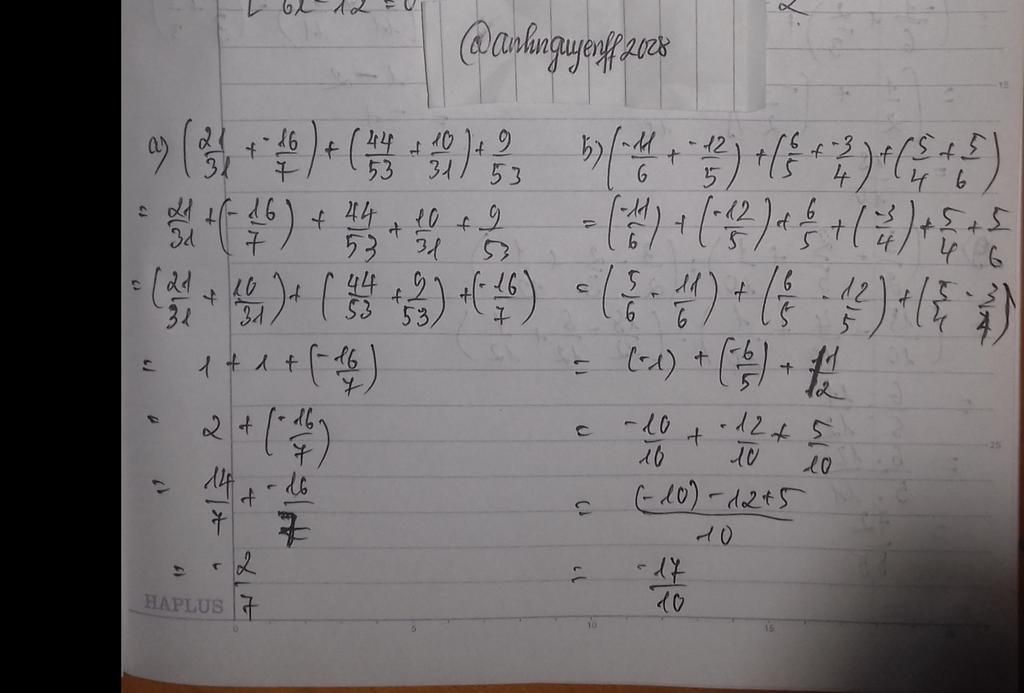 [ 6x - 12 = 0
2
@anhnguyenff2028
a) (21/31 + -16/7) + (44/53 + 10/31) + 9/53
= 21/31 + (-16/7) + 44/53 + 10/31 + 9/53
= (21/31 + 10/31) + (44/53 + 9/53) + (-16/7)
= 1 + 1 + (-16/7)
= 2 + (-16/7)
= 14/7 + -16/7
= -2/7
b) (-11/6 + -12/5) + (6/5 + -3/4) + (5/4 + 5/6)
= (-11/6) + (-12/5) + 6/5 + (-3/4) + 5/4 + 5/6
= (5/6 - 11/6) + (6/5 - 12/5) + (5/4 - 3/4)
= (-1) + (-6/5) + 1/2
= -10/10 + -12/10 + 5/10
= (-10) - 12 + 5 / 10
= -17/10
HAPLUS
0 5 10 15
15
25